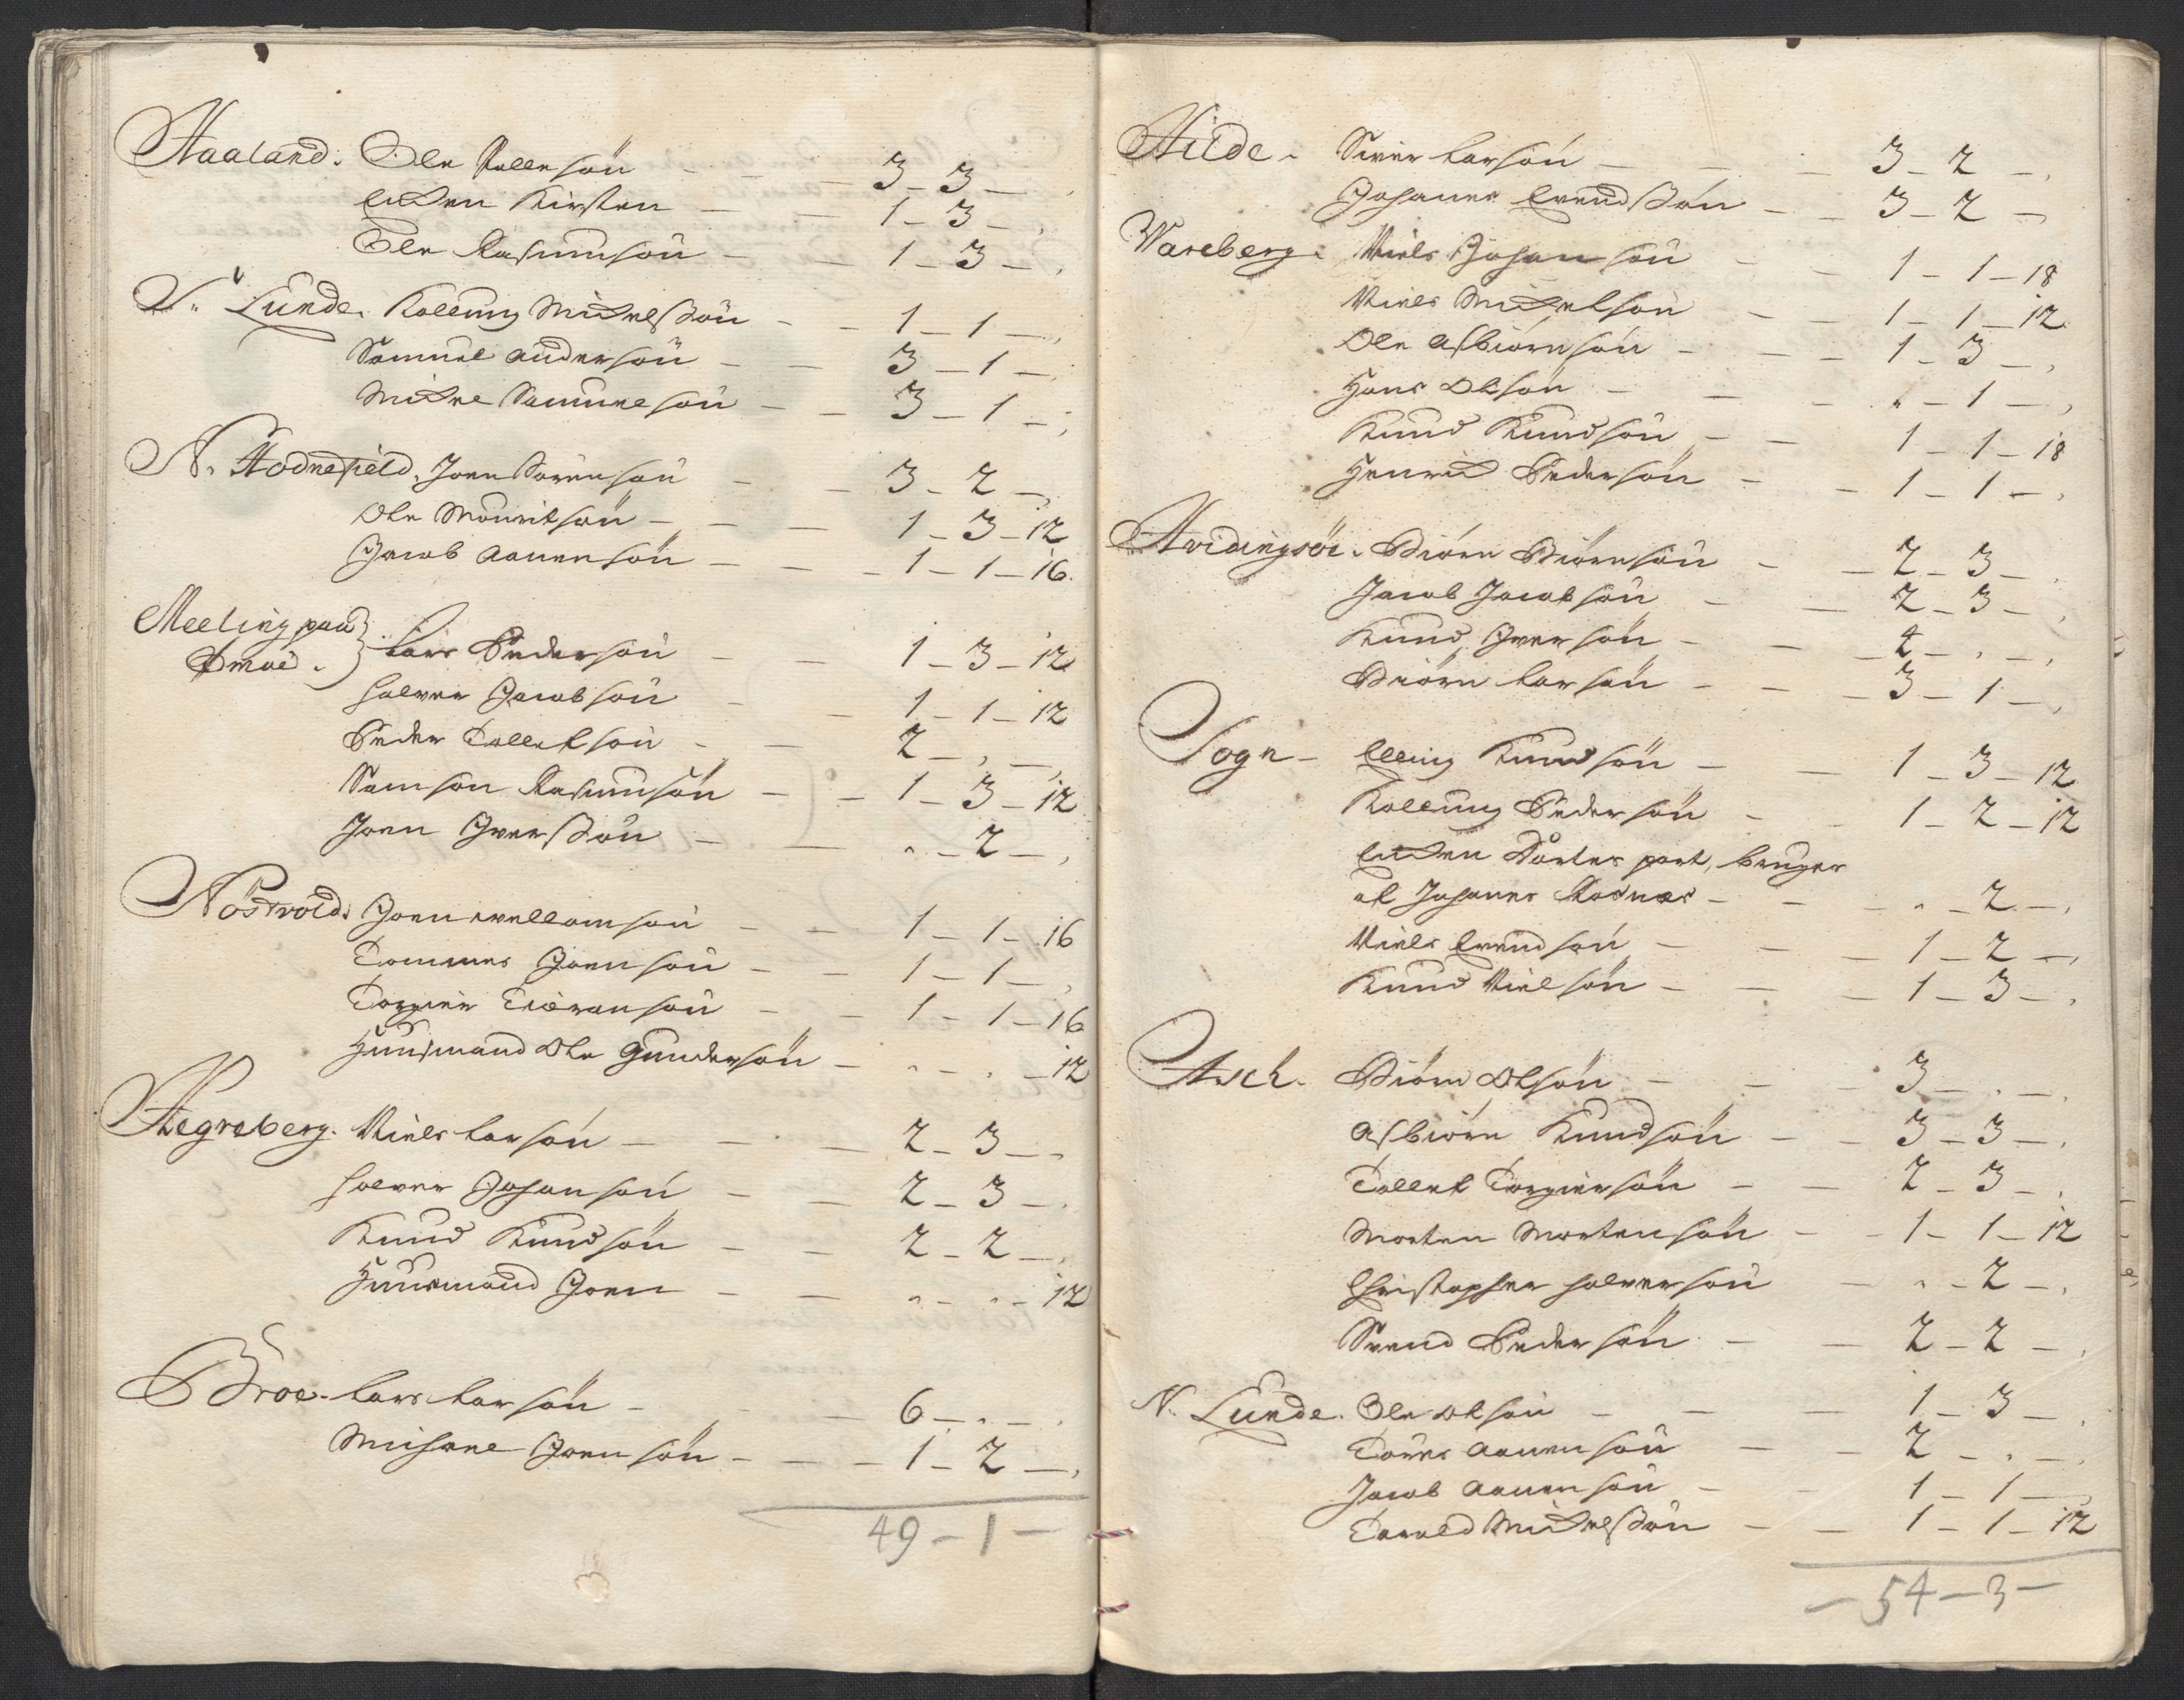 Haaland. Ole Pollesön - - - 3 - 3 -
Encken Kirsten - - 1 - 3 -
Ole Rasmusön - - 1 - 3 -
Lunde. Kollung Mickelsön - - 1 - 1 -
Samuel Andersön - - 3 - 1 -
Mickel Samuelsön - - 3 - 1 -
N. Hodnefield. Joen Sörensön - - 3 - 2 -
Ole Mouritsön - - - 1 - 3 - 12
Jacob Aanensön - - - 1 - 1 - 16.
Meeling paa
Omöe. Lars Pedersön - - 1 - 3 - 12
Halvor Jacobsön - - 1 - 1 - 12
Peder Tolletsön - - 2 - , -
Samson Rasmusön - - 1 - 3 - 12
Joen Iversön - - „ - 2 -
Nöstvold. Joen Wellomsön - - 1 - 1 - 16
Tommes Joensön - - 1 - 1 -
Torgier Tiøransön - - 1 - 1 - 16
Huusmand Ole Gundersön - „ - „ - 12
Hegreberg. Niels Larsön - - - 2 - 3 -
Halvor Johansön - - 2 - 3 -
Knud Knudsön - - 2 - 2 -
Huusmand Joen - - „ - „ - 12
Broe. Lars Larsön - - - 6 - „ -
Michael Joensön - - - 1 - 2 -
49 - 1 -
Hilde. Siver Larsön - - - 3 - 2 -
Johannes Evendsön - - 3 - 2 -
Wareberg. Niels Johansön - - 1 - 1 - 18
Niels Mickelsön - - 1 - 1 - 12.
Ole Asbiörnsön - - - 1 - 3 -
Hans Olsön - - - „ - 1 -
Knud Knudsön - - 1 - 1 - 18
Henrick Pedersön - - 1 - 1 -
Hvidingsöe. Biörn Biörnsön - - 2 - 3 -
Jacob Jacobsön - - 2 - 3 -
Knud Iversön - - - 4 - „ -
Biörn Larsön - - - 3 - 1 -
Sogn - Elling Knudsön - - 1 - 3 - 12
Kollung Pedersön - - 1 - 2 - 12
Encken Dortes part, bruges
af Johannes Rosnæs - - „ - 2 -
Niels Evendsön - - - 1 - 2 -
Knud Nielsön - - - 1 - 3 -
Asch. Biörn Olsön - - - 3 - „ -
Asbiörn Knudsön - - 3 - 3 -
Tollet Torgiersön - - 2 - 3 -
Morten Mortensön - - 1 - 1 - 12
Christopher Halversön - „ - 2 -
Svend Pedersön - - 2 - 2 -
N. Lunde. Ole Olsön - - - 1 - 3 -
Tores Aanensön - - 2 - „ -
Jacob Aanensön - - 1 - 1 -
Torold Mickelsön - - 1 - 1 - 12
- 54 - 3 -